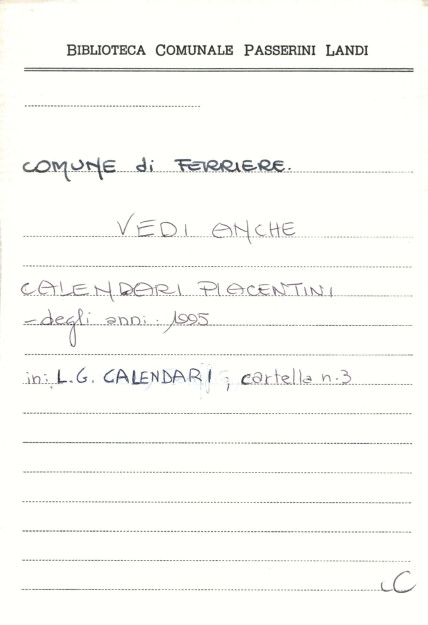 BIBLIOTECA COMUNALE PASSERINI LANDI
COMUNE di FERRIERE.
VEDI ANCHE
CALENDARI PIACENTINI
- degli anni: 1995
in: L.G. CALENDARI, cartella n.3
LC